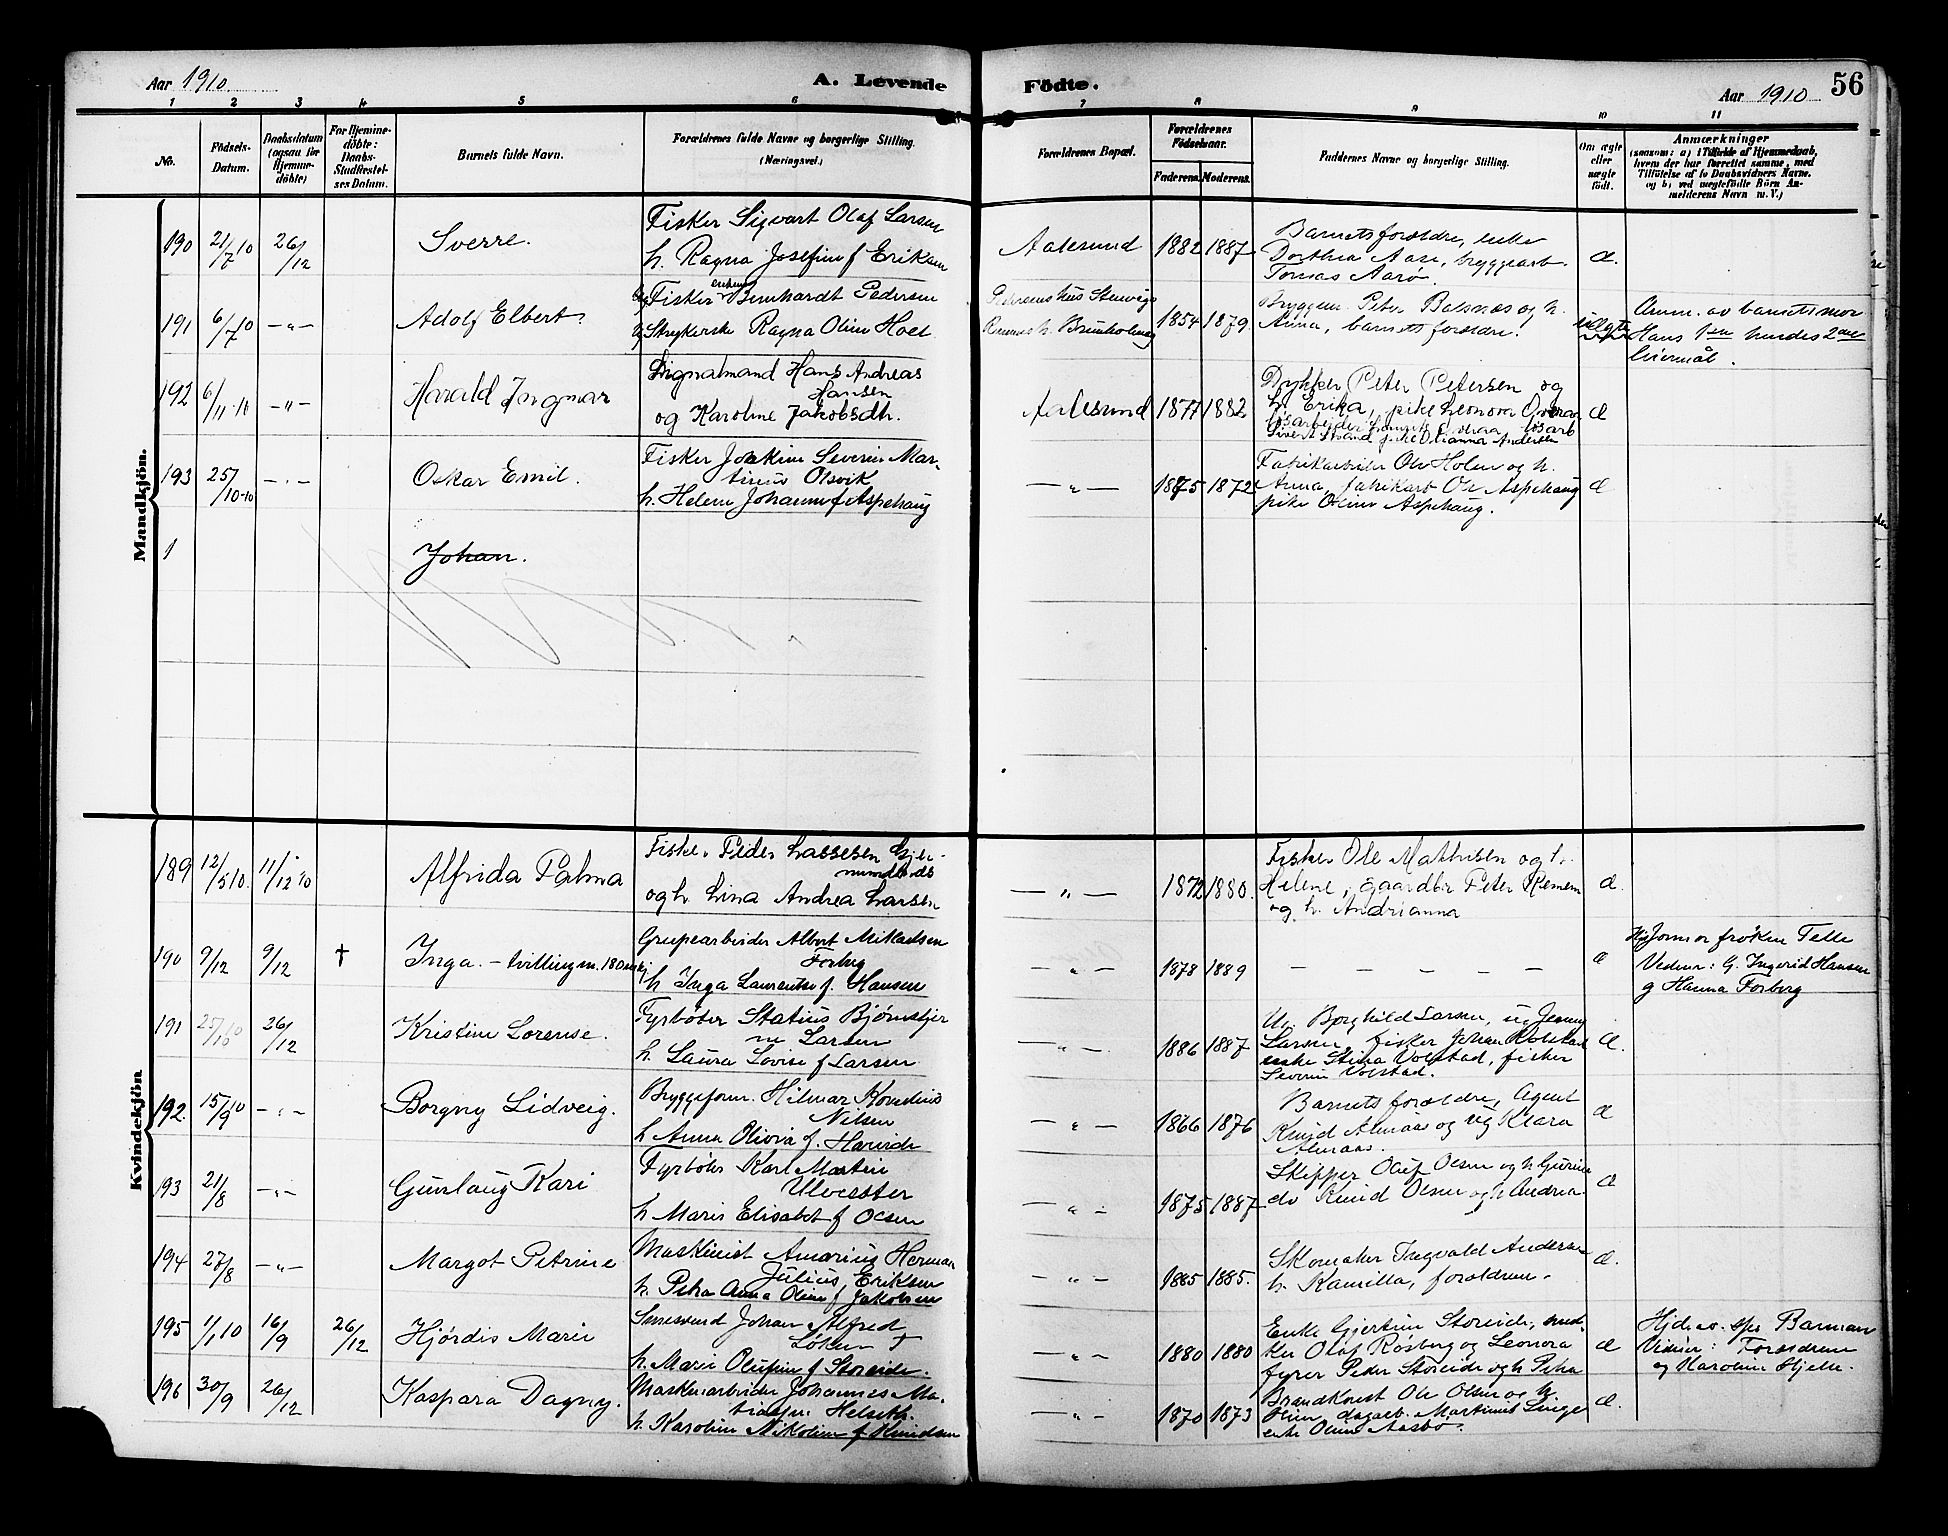 Aar 1910.
A. Levende
Födte.
Aar 1910
56
1 2 3 4 5 6 7 8 9 10 11
No.
Födsels-
Datum.
Daabsdatum
(ogsaa for
Hjemme-
döbte)
For Hjemme-
döbte:
Daabs-
Stadfæstel-
ses Datum.
Barnets fulde Navn.
Forældrenes fulde Navne og borgerlige Stilling.
(Næringsvei.)
Forældrenes Bopæl.
Forældrenes
Födselsaar.
Faderens. Moderens.
Faddernes Navne og borgerlig Stilling.
Om ægte
eller
uægte
födt.
Anmærkninger
(saasom: a) i Tilfælde af Hjemmedaab,
hvem der har forrettet samme, med
Tilföielse af to Daabsvidners Navne,
og b) ved uægtefödte Börn An-
melderens Navn m. V.)
Mandkjön.
190 21/7 10 26/12 Sverre.
Fisker Sigvart Olaf Larsen
h. Ragna Josefine f Eriksen
Aalesund 1882 1887
Barnets forældre, enke
Dorthea Aase, bryggearb.
Tomas Aarø
æ.
191 6/7 10 -"- Adolf Elbert.
Fisker enkem Bernhardt Pedersen
Strykerske Ragna Oline Hoel
1854 1879
Bryggem. Peter Balsnæs og h.
Anna, barnets forældre.
uægte
Anm. av barnets mor
Hans 1ste hendes 2det
leiermål.
192 6/11-10 -"- Harald Ingmar
Signalmand Hans Andreas
Hansen
og Karoline Jakobsdh.
Aalesund 1877 1882
Dykker Peter Petersen og
h. Erika, pike Leonora
Sivert Strand pike Olianna Andersen
æ
193 25/10-10 -"- Oskar Emil.
Fisker Joakim Severin Mar-
tinus Olsvik
h. Helene Johanne f Aspehaug
-"- 1875 1872
Fabrikarbeider Ole Holen og h.
Anna, fabrikarb Ole Aspehaug
pike Oline Aspehaug.
æ
1 Johan.
Kvindekjön
189 12/5 10. 11/12 10 Alfrida Palma
Fisker Peder Lassesen Gjer-
mundnes
og h. Lina Andrea Larsen
-"- 1872 1880.
Fisker Ole Mathisen og h.
Helene, gaardbr Peter Remem
og h. Andrianna
æ.
190 9/12 9/12 † Inga. - tvilling m. 180 mkj
Albert Mikaelsen
Forberg
h Inga Laurentse f. Hansen
-"- 1878 1889 - - - - -
æ
Hj Jormor frøken Telle
Vidner: G. Ingerid Hansen
og Hanna Forberg
191 25/10 10 26/12 Kristine Lorense.
Fyrbøter Statius Bjørnstjer
ne Larsen
h. Laura Lovise f Larsen
-"- 1886 1887
Ug. Borghild Larsen, ug Jenny
Larsen, fisker Johan Volstad
enke Stina Volstad, fisker
Severin Volstad.
æ.
192. 15/9 10 -"- Borgny Lidveig.
Bryggeform. Hilmar Kornelius
Nilsen
h Anna Olivia f. Hareide
-"- 1866 1876
Barnets forældre, Agent
Knud Almaas og ug Klara
Almaas.
æ
193 21/8 -"- Gunlaug Kari
Fyrbøter Karl Martin
Ulvesæter
h Marie Elisabet f Olsen
-"- 1875 1887
Skipper Oluf Olsen og h Gurine
do Knud Olsen og h Andrea
æ
194 27/8 -"- Margot Petrine
Maskinist Amarius Herman
Julius Eriksen
h. Petra Anna Oline f Jakobsen
-"- 1885 1885.
Skomaker Ingvald Andersen
h. Kamilla, forældrene.
æ.
195 1/1 10 16/9 26/12 Hjördis Marie
Smesvend Johan Alfred
Løken
h. Marie Olufine f Storeide.
-"- 1880 1880
Enke Gjertine Storeide, snek-
ker Olaf Røsberg og Leonora
fyrer Peder Storeide og h Petra
æ
Hjdøbt. Barman
Vidner: Forældrene
og Karoline Hjelle.
196 30/9 26/12 Kaspara Dagny.
Maskinarbeider Johannes Ma-
Helseth.
h. Karoline Nikoline f Knudsen
-"- 1870 1873
Brandkonst Ole Olsen og h.
Oline dagarb. Martinus Linge
enke Oline Aasbø.
æ.